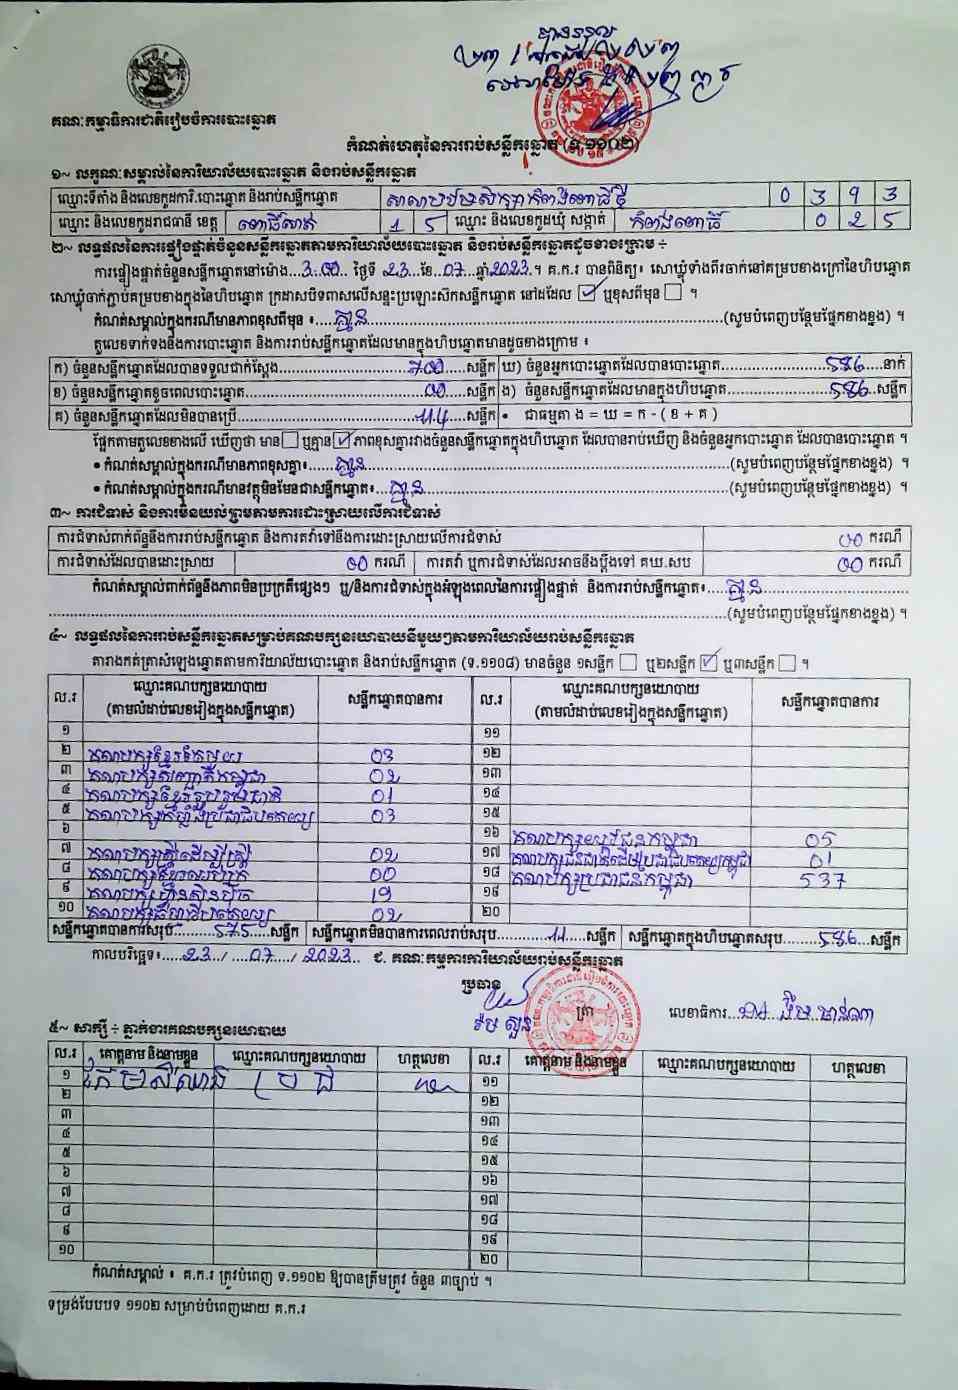 បានទទួល
គណៈកម្មាធិការជាតិរៀបចំការបោះឆ្នោត
កំណត់ហេតុនៃការរាប់សន្លឹកឆ្នោត (ទ.១១០២)
១~ លក្ខណៈសម្គាល់នៃការិយាល័យបោះឆ្នោត និងរាប់សន្លឹកឆ្នោត
ឈ្មោះទីតាំង និងលេខកូដការិ.បោះឆ្នោត និងរាប់សន្លឹកឆ្នោត សាលាបឋមសិក្សាកំពង់ពោធិ៍ថ្មី 0 3 9 3
ឈ្មោះ និងលេខកូដរាជធានី ខេត្ត ពោធិ៍សាត់ 1 5 ឈ្មោះ និងលេខកូដឃុំ សង្កាត់ កំពង់ពោធិ៍ 0 2 5
២~ លទ្ធផលនៃការផ្ទៀងផ្ទាត់ចំនួនសន្លឹកឆ្នោតតាមការិយាល័យបោះឆ្នោត និងរាប់សន្លឹកឆ្នោតដូចខាងក្រោម ÷
ការផ្ទៀងផ្ទាត់ចំនួនសន្លឹកឆ្នោតនៅម៉ោង...3:00... ថ្ងៃទី 23...ខែ...07...ឆ្នាំ 2023.។ គ.ក.រ បានពិនិត្យ៖ សោឃ្លុំទាំងពីរចាក់នៅគម្របខាងក្រៅនៃហិបឆ្នោត
សោឃ្លុំចាក់ភ្ជាប់គម្របខាងក្នុងនៃហិបឆ្នោត ក្រដាសបិទពាសលើសន្ទះប្រឡោះស៊កសន្លឹកឆ្នោត នៅដដែល ☑ ឬខុសពីមុន ☐ ។
កំណត់សម្គាល់ក្នុងករណីមានភាពខុសពីមុន ៖.....គ្មាន.....(សូមបំពេញបន្ថែមផ្នែកខាងខ្នង) ។
តួលេខទាក់ទងនឹងការបោះឆ្នោត និងការរាប់សន្លឹកឆ្នោតដែលមានក្នុងហិបឆ្នោតមានដូចខាងក្រោម ៖
ក) ចំនួនសន្លឹកឆ្នោតដែលបានទទួលជាក់ស្ដែង.....700.....សន្លឹក ឃ) ចំនួនអ្នកបោះឆ្នោតដែលបានបោះឆ្នោត.....586.....នាក់
ខ) ចំនួនសន្លឹកឆ្នោតខូចពេលបោះឆ្នោត.....00.....សន្លឹក ង) ចំនួនសន្លឹកឆ្នោតដែលមានក្នុងហិបឆ្នោត.....586.....សន្លឹក
គ) ចំនួនសន្លឹកឆ្នោតដែលមិនបានប្រើ.....114.....សន្លឹក • ជាធម្មតា ង = ឃ = ក - ( ខ + គ )
ផ្អែកតាមតួលេខខាងលើ ឃើញថា មាន ☐ ឬគ្មាន ☑ ភាពខុសគ្នារវាងចំនួនសន្លឹកឆ្នោតក្នុងហិបឆ្នោត ដែលបានរាប់ឃើញ និងចំនួនអ្នកបោះឆ្នោត ដែលបានបោះឆ្នោត ។
• កំណត់សម្គាល់ក្នុងករណីមានភាពខុសគ្នា៖.....គ្មាន.....(សូមបំពេញបន្ថែមផ្នែកខាងខ្នង) ។
• កំណត់សម្គាល់ក្នុងករណីមានវត្ថុមិនមែនជាសន្លឹកឆ្នោត៖.....គ្មាន.....(សូមបំពេញបន្ថែមផ្នែកខាងខ្នង) ។
៣~ ការជំទាស់ និងការមិនយល់ព្រមតាមការដោះស្រាយលើការជំទាស់
ការជំទាស់ពាក់ព័ន្ធនឹងការរាប់សន្លឹកឆ្នោត និងការតវ៉ាទៅនឹងការដោះស្រាយលើការជំទាស់ 00 ករណី
ការជំទាស់ដែលបានដោះស្រាយ 00 ករណី ការតវ៉ា ឬការជំទាស់ដែលអាចនឹងប្ដឹងទៅ គឃ.សប 00 ករណី
កំណត់សម្គាល់ពាក់ព័ន្ធនឹងភាពមិនប្រក្រតីផ្សេងៗ ឬ/និងការជំទាស់ក្នុងអំឡុងពេលនៃការផ្ទៀងផ្ទាត់ និងការរាប់សន្លឹកឆ្នោត៖.....គ្មាន.....
.....(សូមបំពេញបន្ថែមផ្នែកខាងខ្នង) ។
៤~ លទ្ធផលនៃការរាប់សន្លឹកឆ្នោតសម្រាប់គណបក្សនយោបាយនីមួយៗតាមការិយាល័យរាប់សន្លឹកឆ្នោត
តារាងកត់ត្រាសំឡេងឆ្នោតតាមការិយាល័យបោះឆ្នោត និងរាប់សន្លឹកឆ្នោត (ទ.១១០៨) មានចំនួន ១សន្លឹក ☐ ឬ២សន្លឹក ☑ ឬ៣សន្លឹក ☐ ។
ល.រ ឈ្មោះគណបក្សនយោបាយ (តាមលំដាប់លេខរៀងក្នុងសន្លឹកឆ្នោត) សន្លឹកឆ្នោតបានការ ល.រ ឈ្មោះគណបក្សនយោបាយ (តាមលំដាប់លេខរៀងក្នុងសន្លឹកឆ្នោត) សន្លឹកឆ្នោតបានការ
១ ១១
២ គណបក្សខ្មែរតែមួយ 03 ១២
៣ គណបក្សសញ្ជាតិកម្ពុជា 02 ១៣
៤ គណបក្សខ្មែររួបរួមជាតិ 01 ១៤
៥ គណបក្សកម្លាំងប្រជាធិបតេយ្យ 03 ១៥
៦ ១៦ គណបក្សយុវជនកម្ពុជា 05
៧ គណបក្សស្ត្រីដើម្បីស្ត្រី 02 ១៧ គណបក្សជនជាតិដើមប្រជាធិបតេយ្យកម្ពុជា 01
៨ គណបក្សខ្មែរអភិរក្ស 00 ១៨ គណបក្សប្រជាជនកម្ពុជា 537
៩ គណបក្សហ៊្វុនស៊ិនប៉ិច 19 ១៩
១០ គណបក្សធម្មាធិបតេយ្យ 02 ២០
សន្លឹកឆ្នោតបានការសរុប.....575.....សន្លឹក សន្លឹកឆ្នោតមិនបានការពេលរាប់សរុប.....11.....សន្លឹក សន្លឹកឆ្នោតក្នុងហិបឆ្នោតសរុប.....586.....សន្លឹក
កាលបរិច្ឆេទ៖.....23.../...07.../ 2023.. ជ. គណៈកម្មការការិយាល័យរាប់សន្លឹកឆ្នោត
ប្រធាន ត្រា លេខាធិការ
៥~ សាក្សី ÷ ភ្នាក់ងារគណបក្សនយោបាយ
ល.រ គោត្តនាម និងនាមខ្លួន ឈ្មោះគណបក្សនយោបាយ ហត្ថលេខា ល.រ គោត្តនាម និងនាមខ្លួន ឈ្មោះគណបក្សនយោបាយ ហត្ថលេខា
១ ប្រជា ១១
២ ១២
៣ ១៣
៤ ១៤
៥ ១៥
៦ ១៦
៧ ១៧
៨ ១៨
៩ ១៩
១០ ២០
កំណត់សម្គាល់ ៖ គ.ក.រ ត្រូវបំពេញ ទ.១១០២ ឱ្យបានត្រឹមត្រូវ ចំនួន ៣ច្បាប់ ។
ទម្រង់បែបបទ ១១០២ សម្រាប់បំពេញដោយ គ.ក.រ